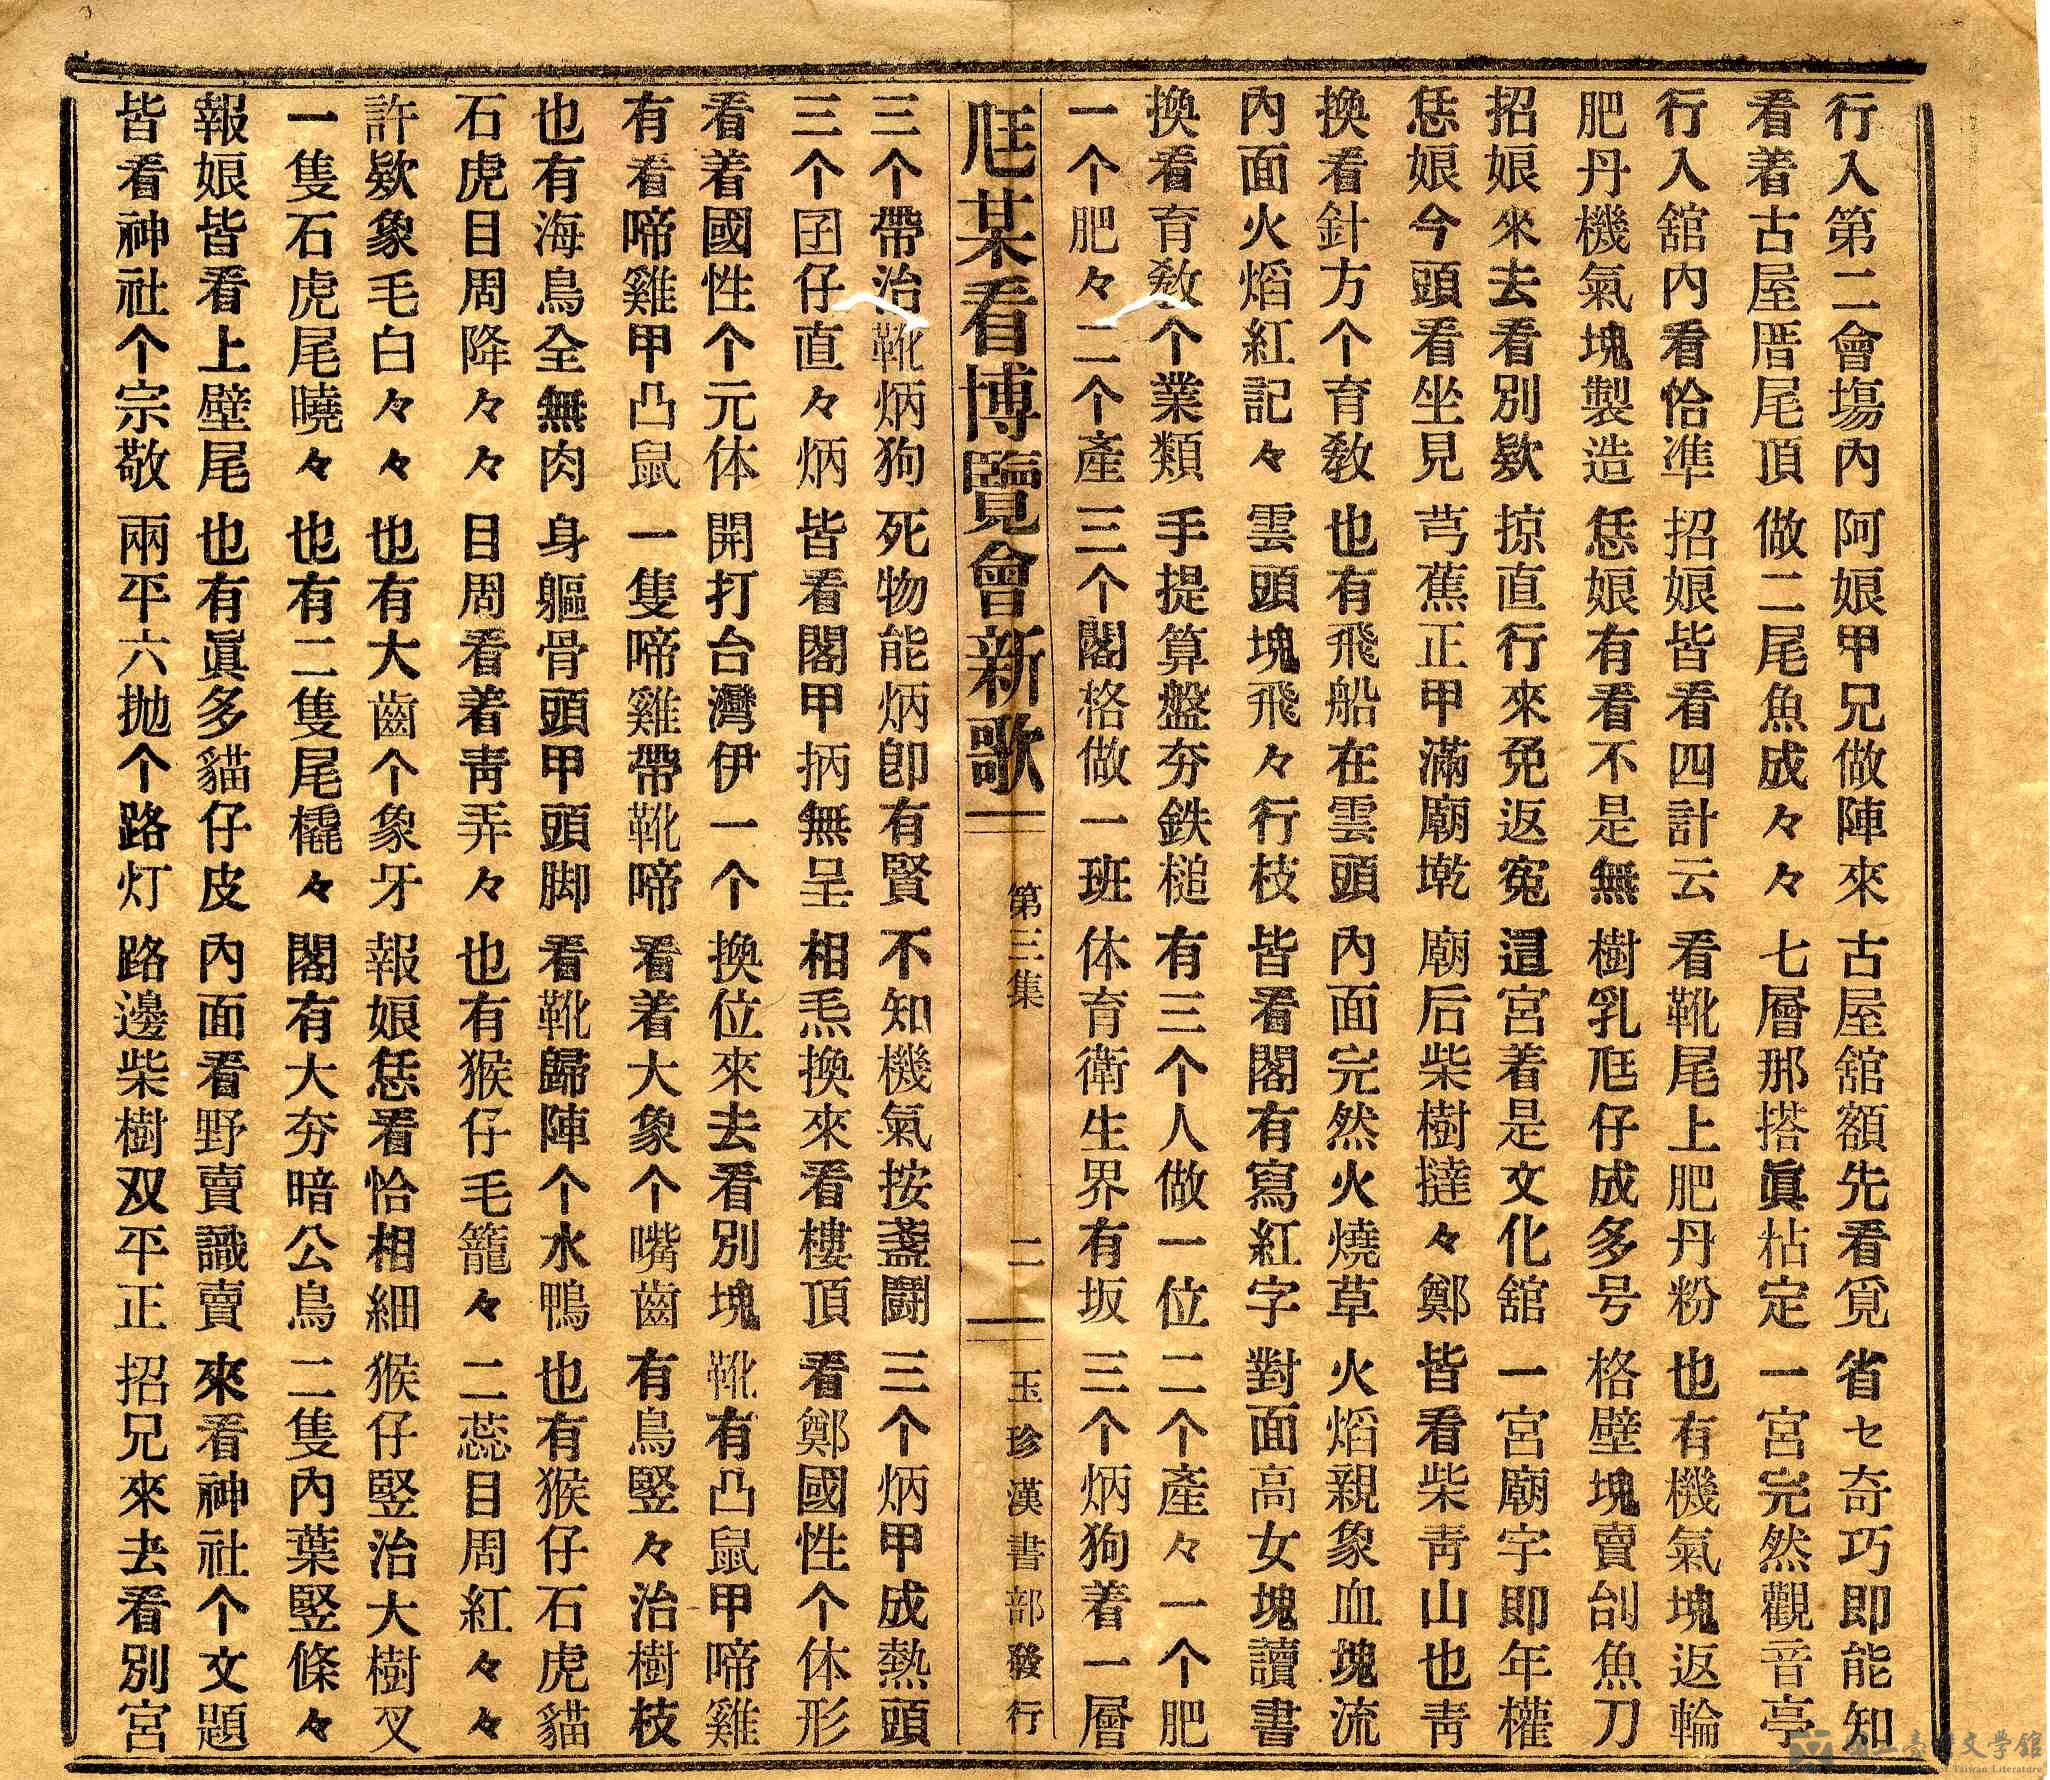 行入第二會塲內 阿娘甲兄做陣來 古屋舘額先看覓 省七奇巧即能知
看着古屋厝尾頂 做二尾魚成々々 七層那搭眞枯定 一宮完然觀音亭
行入舘內看恰準 招娘皆看四計云 看靴尾上肥丹粉 也有機氣塊返輪
肥丹機氣塊製造 恁娘有看不是無 樹乳尫仔成多号 格壁塊賣刣魚刀
招娘來去看別欵 掠直行來免返寃 這宮着是文化舘 一宮廟宇即年權
恁娘今頭看坐見 芎蕉正甲滿廟墘 廟后柴樹撻々鄭 皆看柴靑山也靑
換看針方个育敎 也有飛船在雲頭 內面完然火燒草 火熖親象血塊流
內面火熖紅記々 雲頭塊飛々行枝 皆看閣有寫紅字 對面高女塊讀書
換看育敎个業類 手提算盤夯鉄槌 有三个人做一位 二个產々一个肥
一个肥々二个產 三个閣格做一班 体育衛生界有坂 三个炳狗着一層
尫某看博覽會新歌 第三集 二 玉珍漢書部發行
三个帶治靴炳狗 死物能炳卽有賢 不知機氣按盞鬪 三个炳甲成熱頭
三个囝仔直々炳 皆看閣甲抦無呈 相炁換來看樓頂 看鄭國性个体形
看着國性个元体 開打台灣伊一个 換位來去看別塊 靴有凸鼠甲啼雞
有看啼雞甲凸鼠 一隻啼雞帶靴啼 看着大象个嘴齒 有鳥竪々治樹枝
也有海鳥全無肉 身軀骨頭甲頭脚 看靴歸陣个水鴨 也有猴仔石虎貓
石虎目周降々々 目周看着靑弄々 也有猴仔毛籠々 二蕊目周紅々々
許欵象毛白々々 也有大齒个象牙 報娘恁看恰相細 猴仔竪治大樹叉
一隻石虎尾曉々 也有二隻尾橇々 閣有大夯暗公鳥 二隻內葉竪條々
報娘皆看上壁尾 也有眞多貓仔皮 內面看野賣識賣 來看神社个文題
皆看神社个宗敬 兩平六抛个路灯 路邊柴樹双平正 招兄來去看別宮